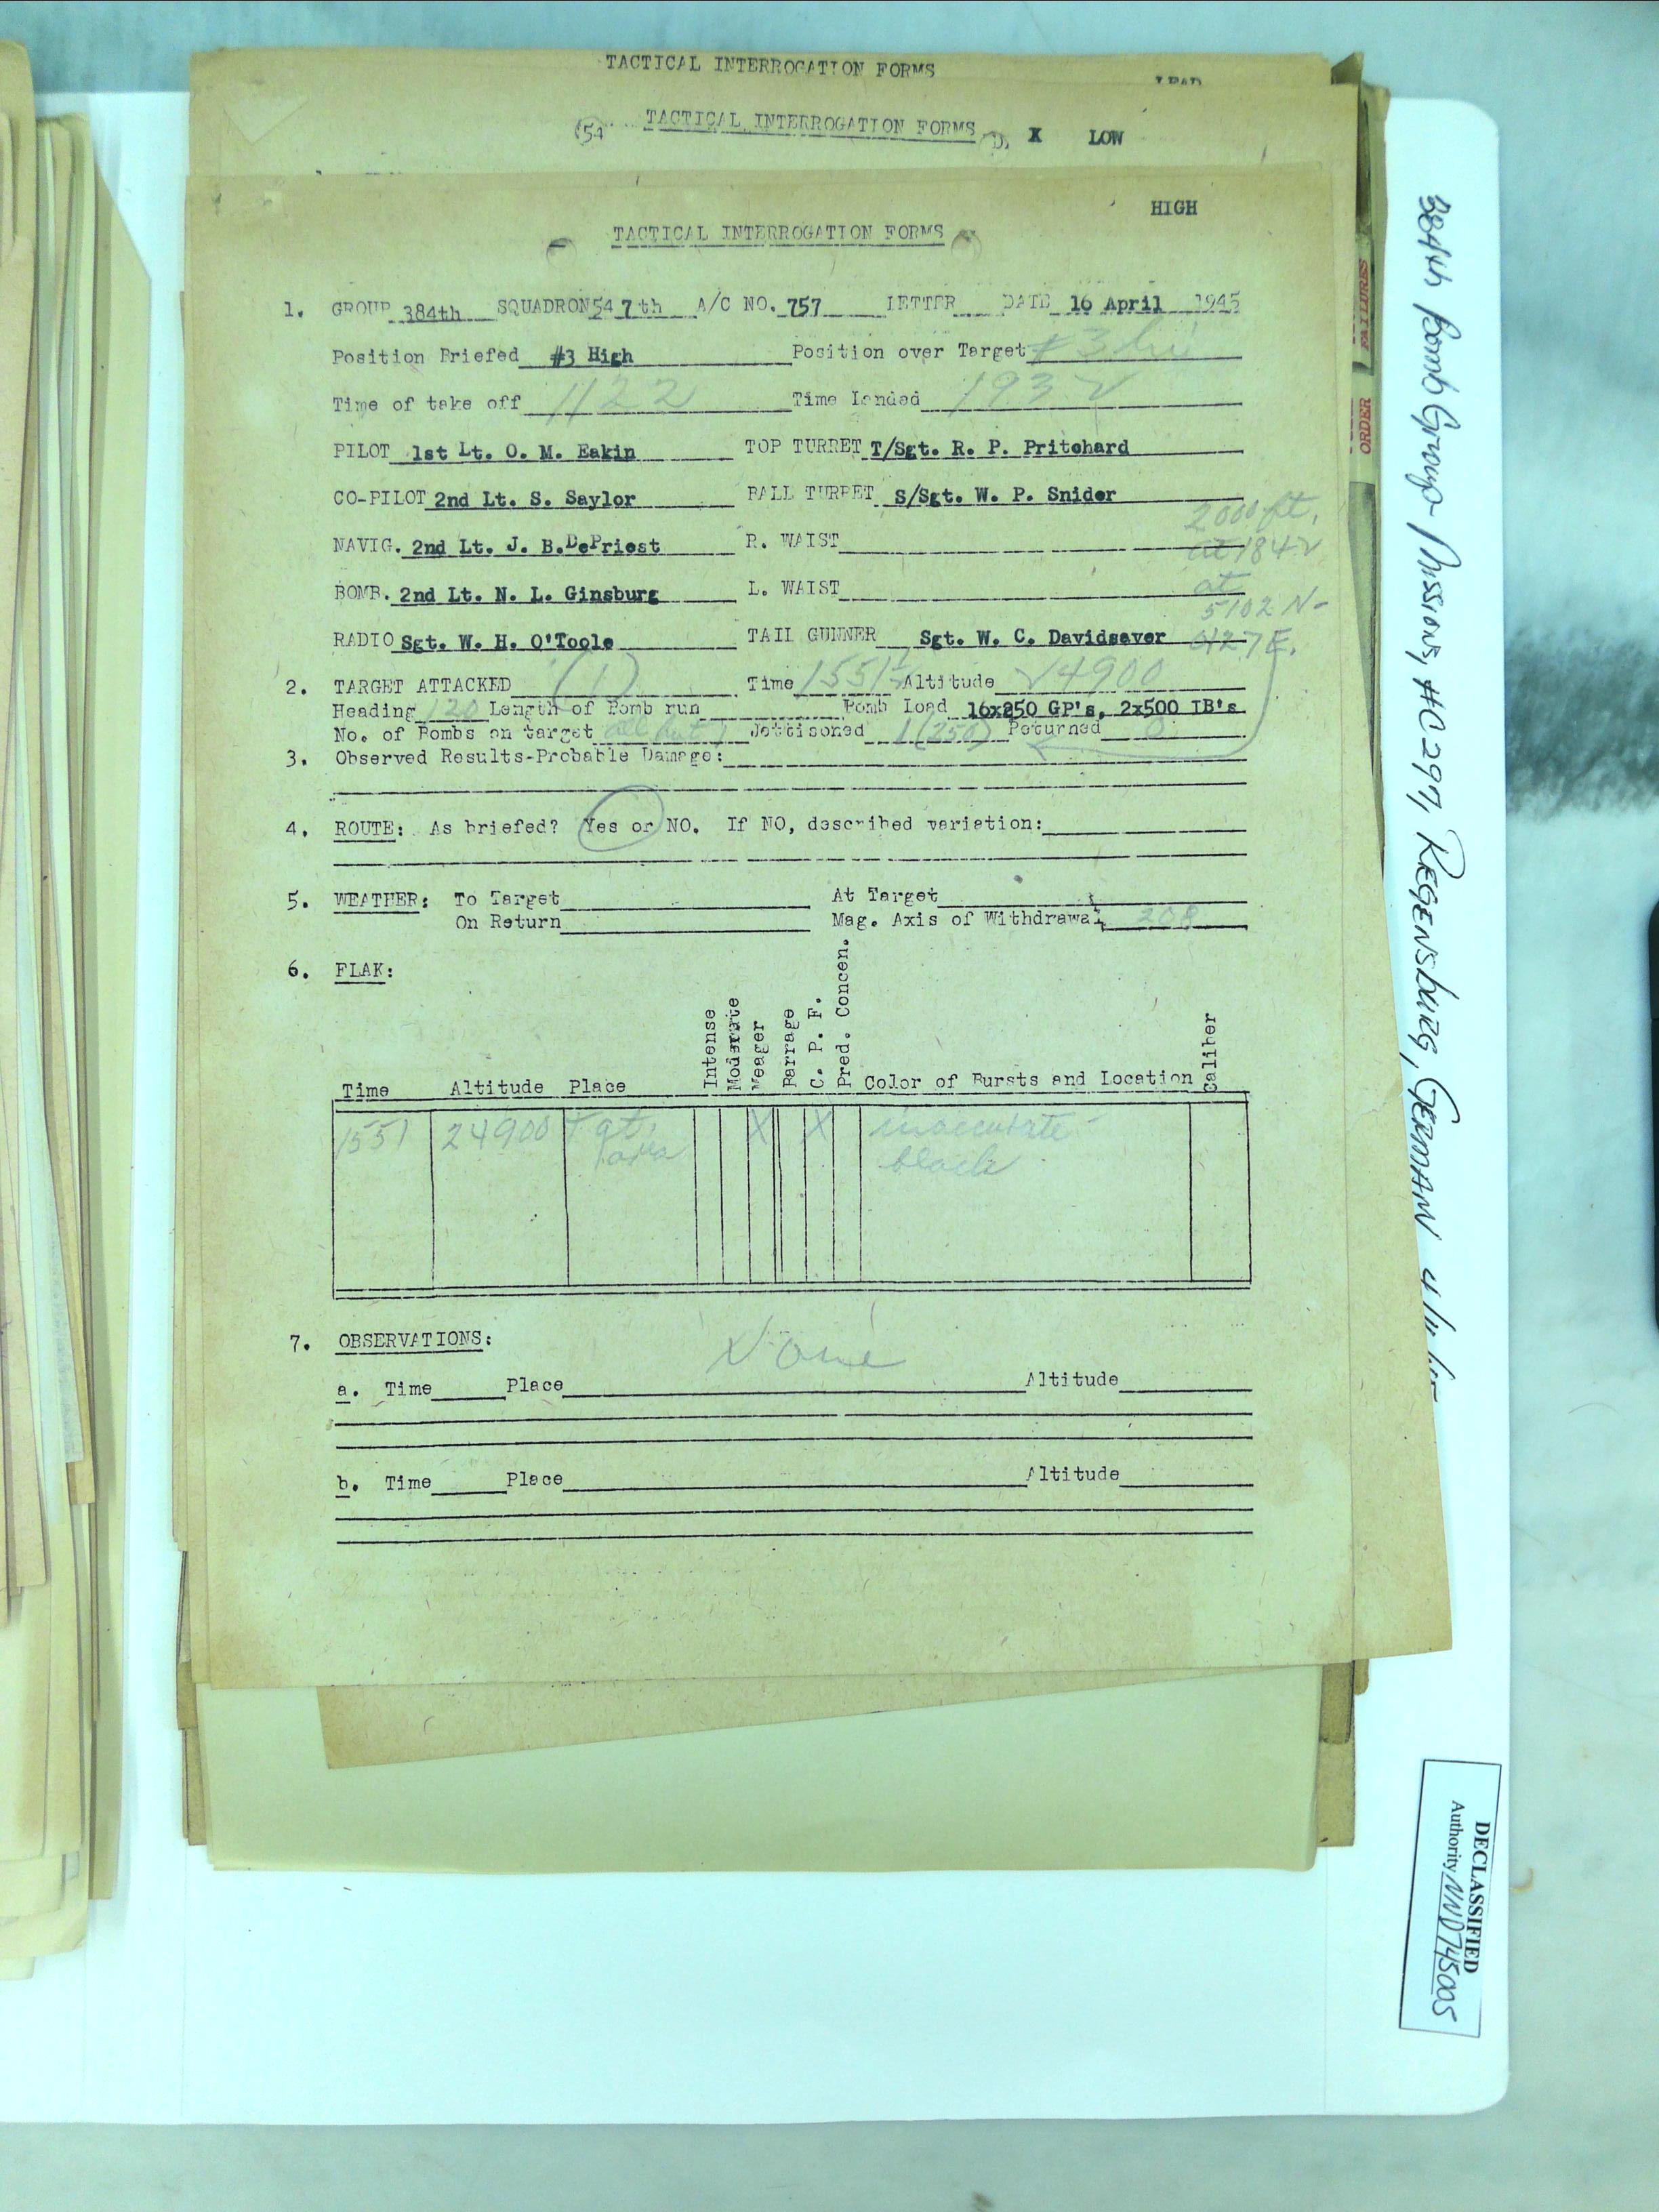 TACTICAL INTERROGATION FORMS
LEAD
(54 TACTICAL INTERROGATION FORMS D. X LOW
HIGH
TACTICAL INTERROGATION FORMS
1. GROUP 384th SQUADRON 547th A/C NO. 757 LETTER DATE 16 April 1945
Position Briefed #3 High Position over Target #3 hi
Time of take off 1122 Time Landed 1932
PILOT 1st Lt. O. M. Eakin TOP TURRET T/Sgt. R. P. Pritchard
CO-PILOT 2nd Lt. S. Saylor BALL TURRET S/Sgt. W. P. Snider
2000 ft.
NAVIG. 2nd Lt. J. B. DePriest R. WAIST
at 1842
BOMB. 2nd Lt. N. L. Ginsburg L. WAIST
at
5102 N-
RADIO Sgt. W. H. O'Toole TAIL GUNNER Sgt. W. C. Davidsaver
0127 E.
2. TARGET ATTACKED (1) Time 1551½ Altitude 24900
Heading 120 Length of Bomb run Bomb Load 16x250 GP's, 2x500 IB's
No. of Bombs on target all but 1 Jettisoned 1 (250) Returned 0
3. Observed Results-Probable Damage:
4. ROUTE: As briefed? Yes or NO. If NO, described variation:
5. WEATHER: To Target At Target
On Return Mag. Axis of Withdrawal 208
6. FLAK:
Time Altitude Place Intense Moderate Meager Barrage C. P. F. Pred. Concen. Color of Bursts and Location Caliber
1551 24900 Tgt. area X X inaccurate-
black
7. OBSERVATIONS: None
a. Time Place Altitude
b. Time Place Altitude
FAILURES
ORDER
384th Bomb Group Missions, #C297, REGENSBURG, GERMAN
DECLASSIFIED
Authority NND745005